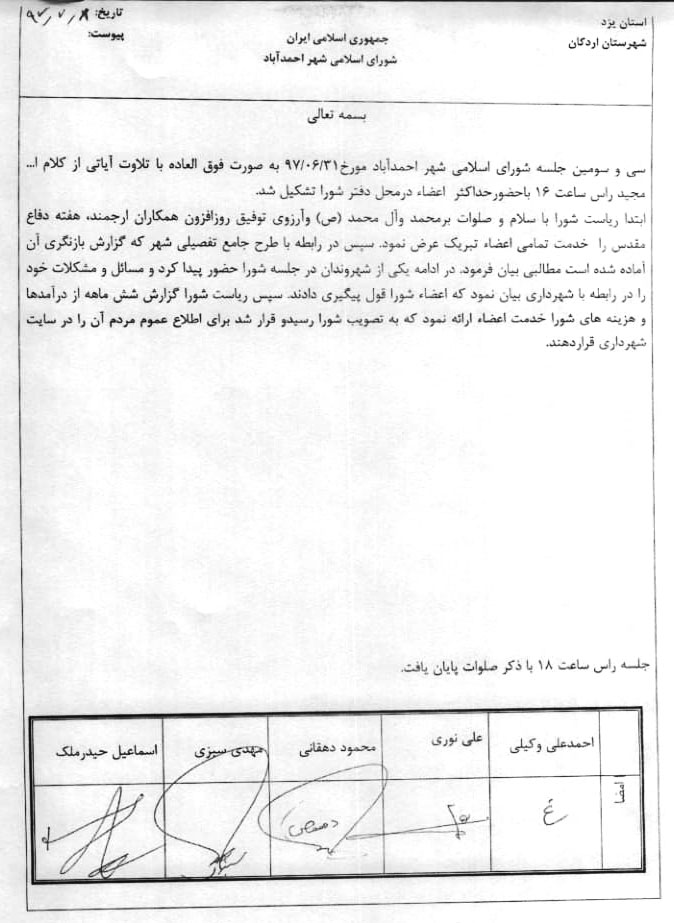 استان یزد
شهرستان اردکان
جمهوری اسلامی ایران
شورای اسلامی شهر احمدآباد
تاریخ: ۹۷٫۷٫۸
پیوست:
بسمه تعالی
سی و سومین جلسه شورای اسلامی شهر احمدآباد مورخ۹۷/۰۶/۳۱ به صورت فوق العاده با تلاوت آیاتی از کلام ا...
مجید راس ساعت ۱۶ باحضورحداکثر اعضاء درمحل دفتر شورا تشکیل شد.
ابتدا ریاست شورا با سلام و صلوات برمحمد وآل محمد (ص) وآرزوی توفیق روزافزون همکاران ارجمند، هفته دفاع
مقدس را خدمت تمامی اعضاء تبریک عرض نمود. سپس در رابطه با طرح جامع تفصیلی شهر که گزارش بازنگری آن
آماده شده است مطالبی بیان فرمود. در ادامه یکی از شهروندان در جلسه شورا حضور پیدا کرد و مسائل و مشکلات خود
را در رابطه با شهرداری بیان نمود که اعضاء شورا قول پیگیری دادند. سپس ریاست شورا گزارش شش ماهه از درآمدها
و هزینه های شورا خدمت اعضاء ارائه نمود که به تصویب شورا رسیدو قرار شد برای اطلاع عموم مردم آن را در سایت
شهرداری قراردهند.
جلسه راس ساعت ۱۸ با ذکر صلوات پایان یافت.
احمدعلی وکیلی علی نوری محمود دهقانی مهدی سبزی اسماعیل حیدرملک
امضا